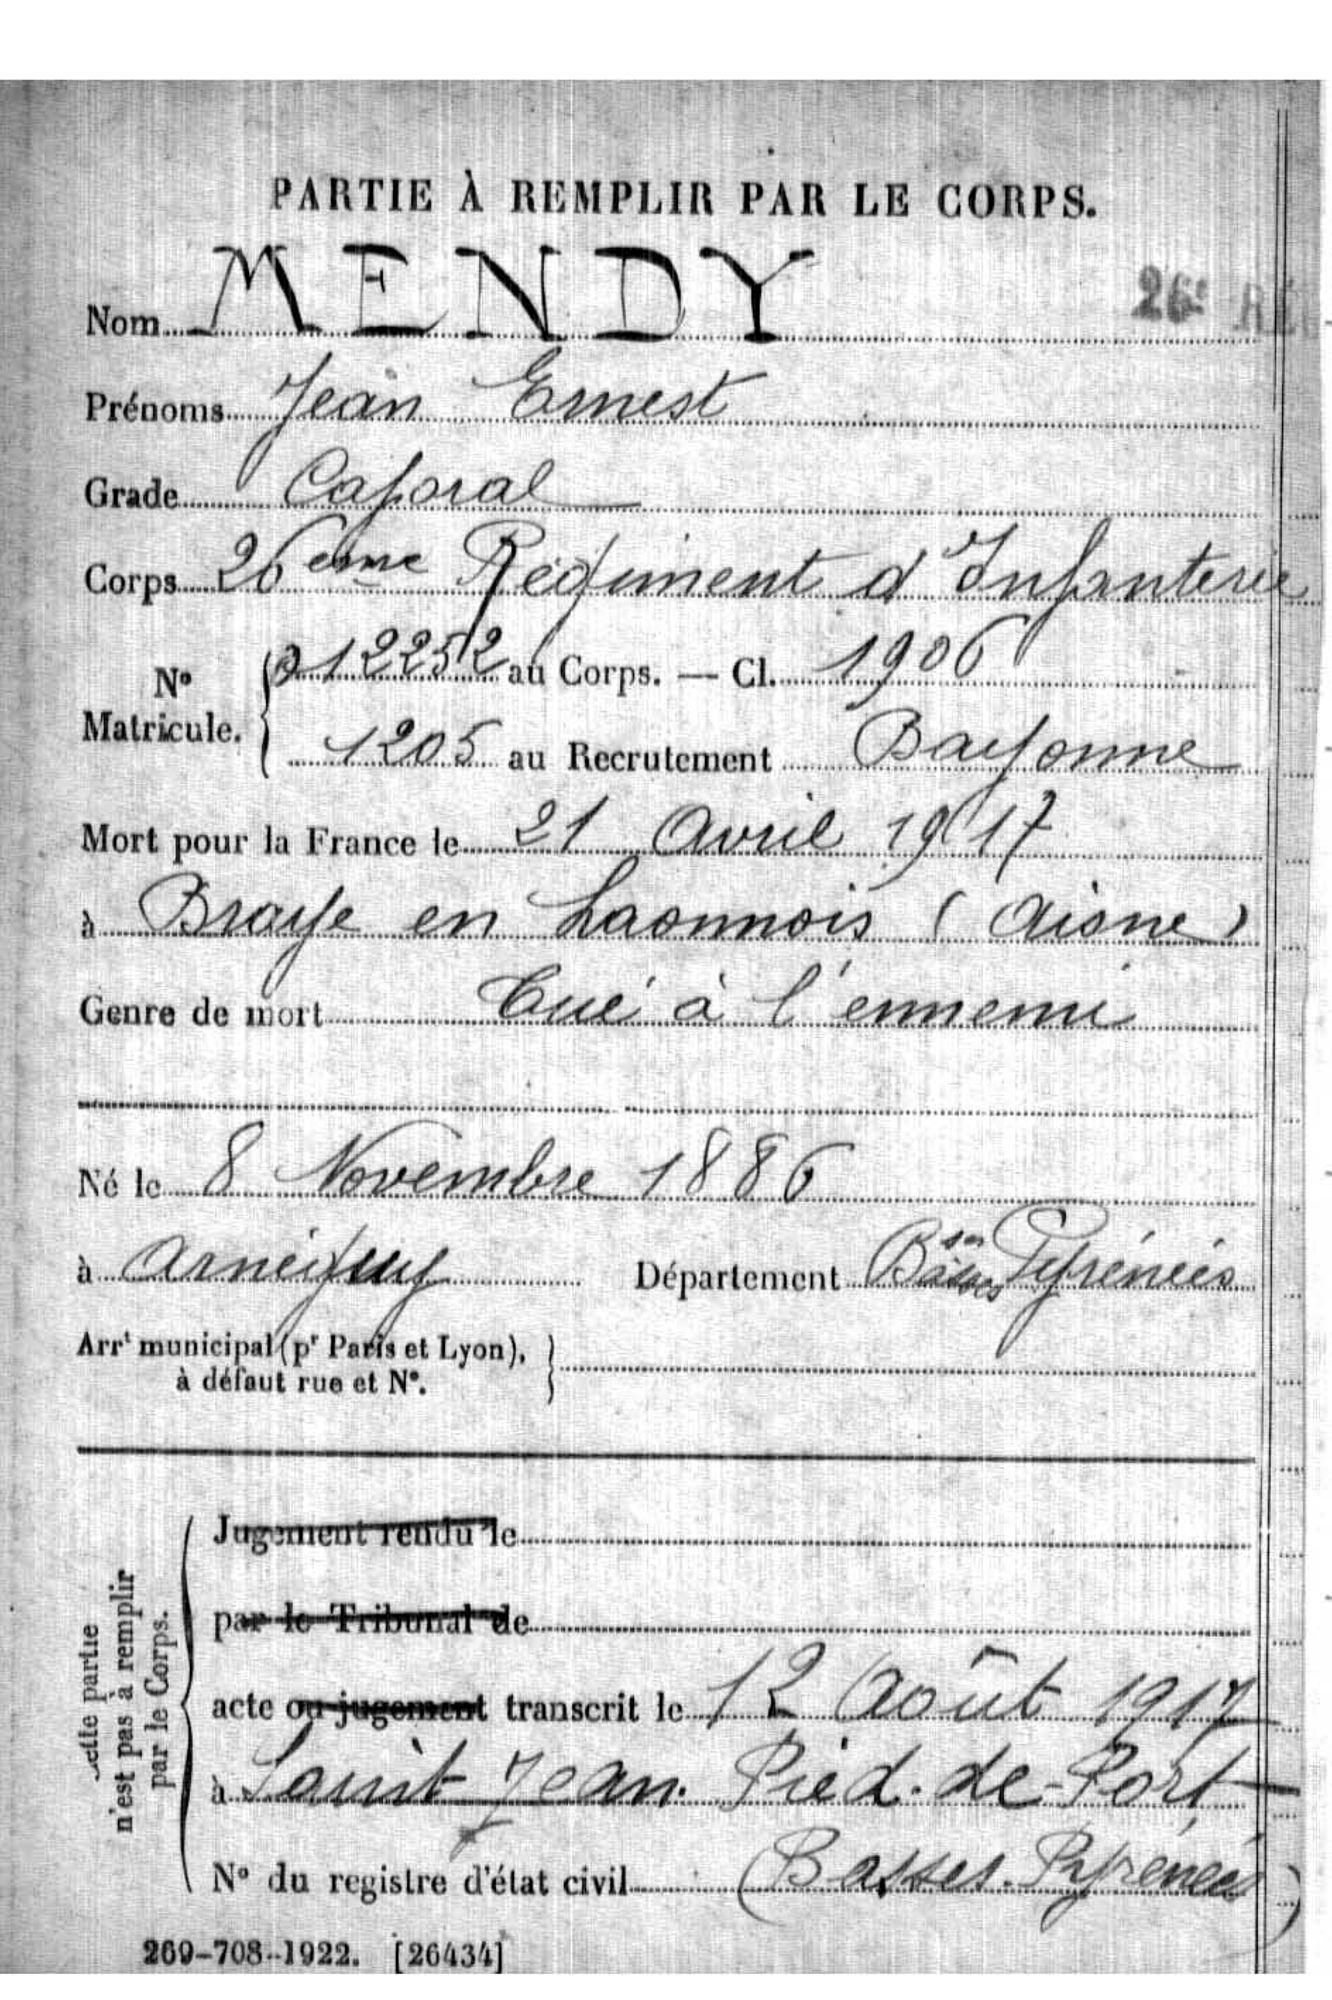 PARTIE À REMPLIR PAR LE CORPS.
Nom MENDY
26e RÉ
Prénoms Jean Ernest
Grade Caporal
Corps 26eme Régiment d'Infanterie
No Matricule. 12252 au Corps. — Cl. 1906
1205 au Recrutement Bayonne
Mort pour la France le 21 Avril 1917
à Braye en Laonnois (Aisne)
Genre de mort Tué à l'ennemi
Né le 8 Novembre 1886
à Arnéguy Département Bses Pyrénées
Arrt municipal (pr Paris et Lyon),
à défaut rue et No.
Cette partie
n'est pas à remplir
par le Corps.
Jugement rendu le
par le Tribunal de
acte ou jugement transcrit le 12 Août 1917
à Saint-Jean-Pied-de-Port
No du registre d'état civil (Basses-Pyrénées)
269-708-1922. [26434]